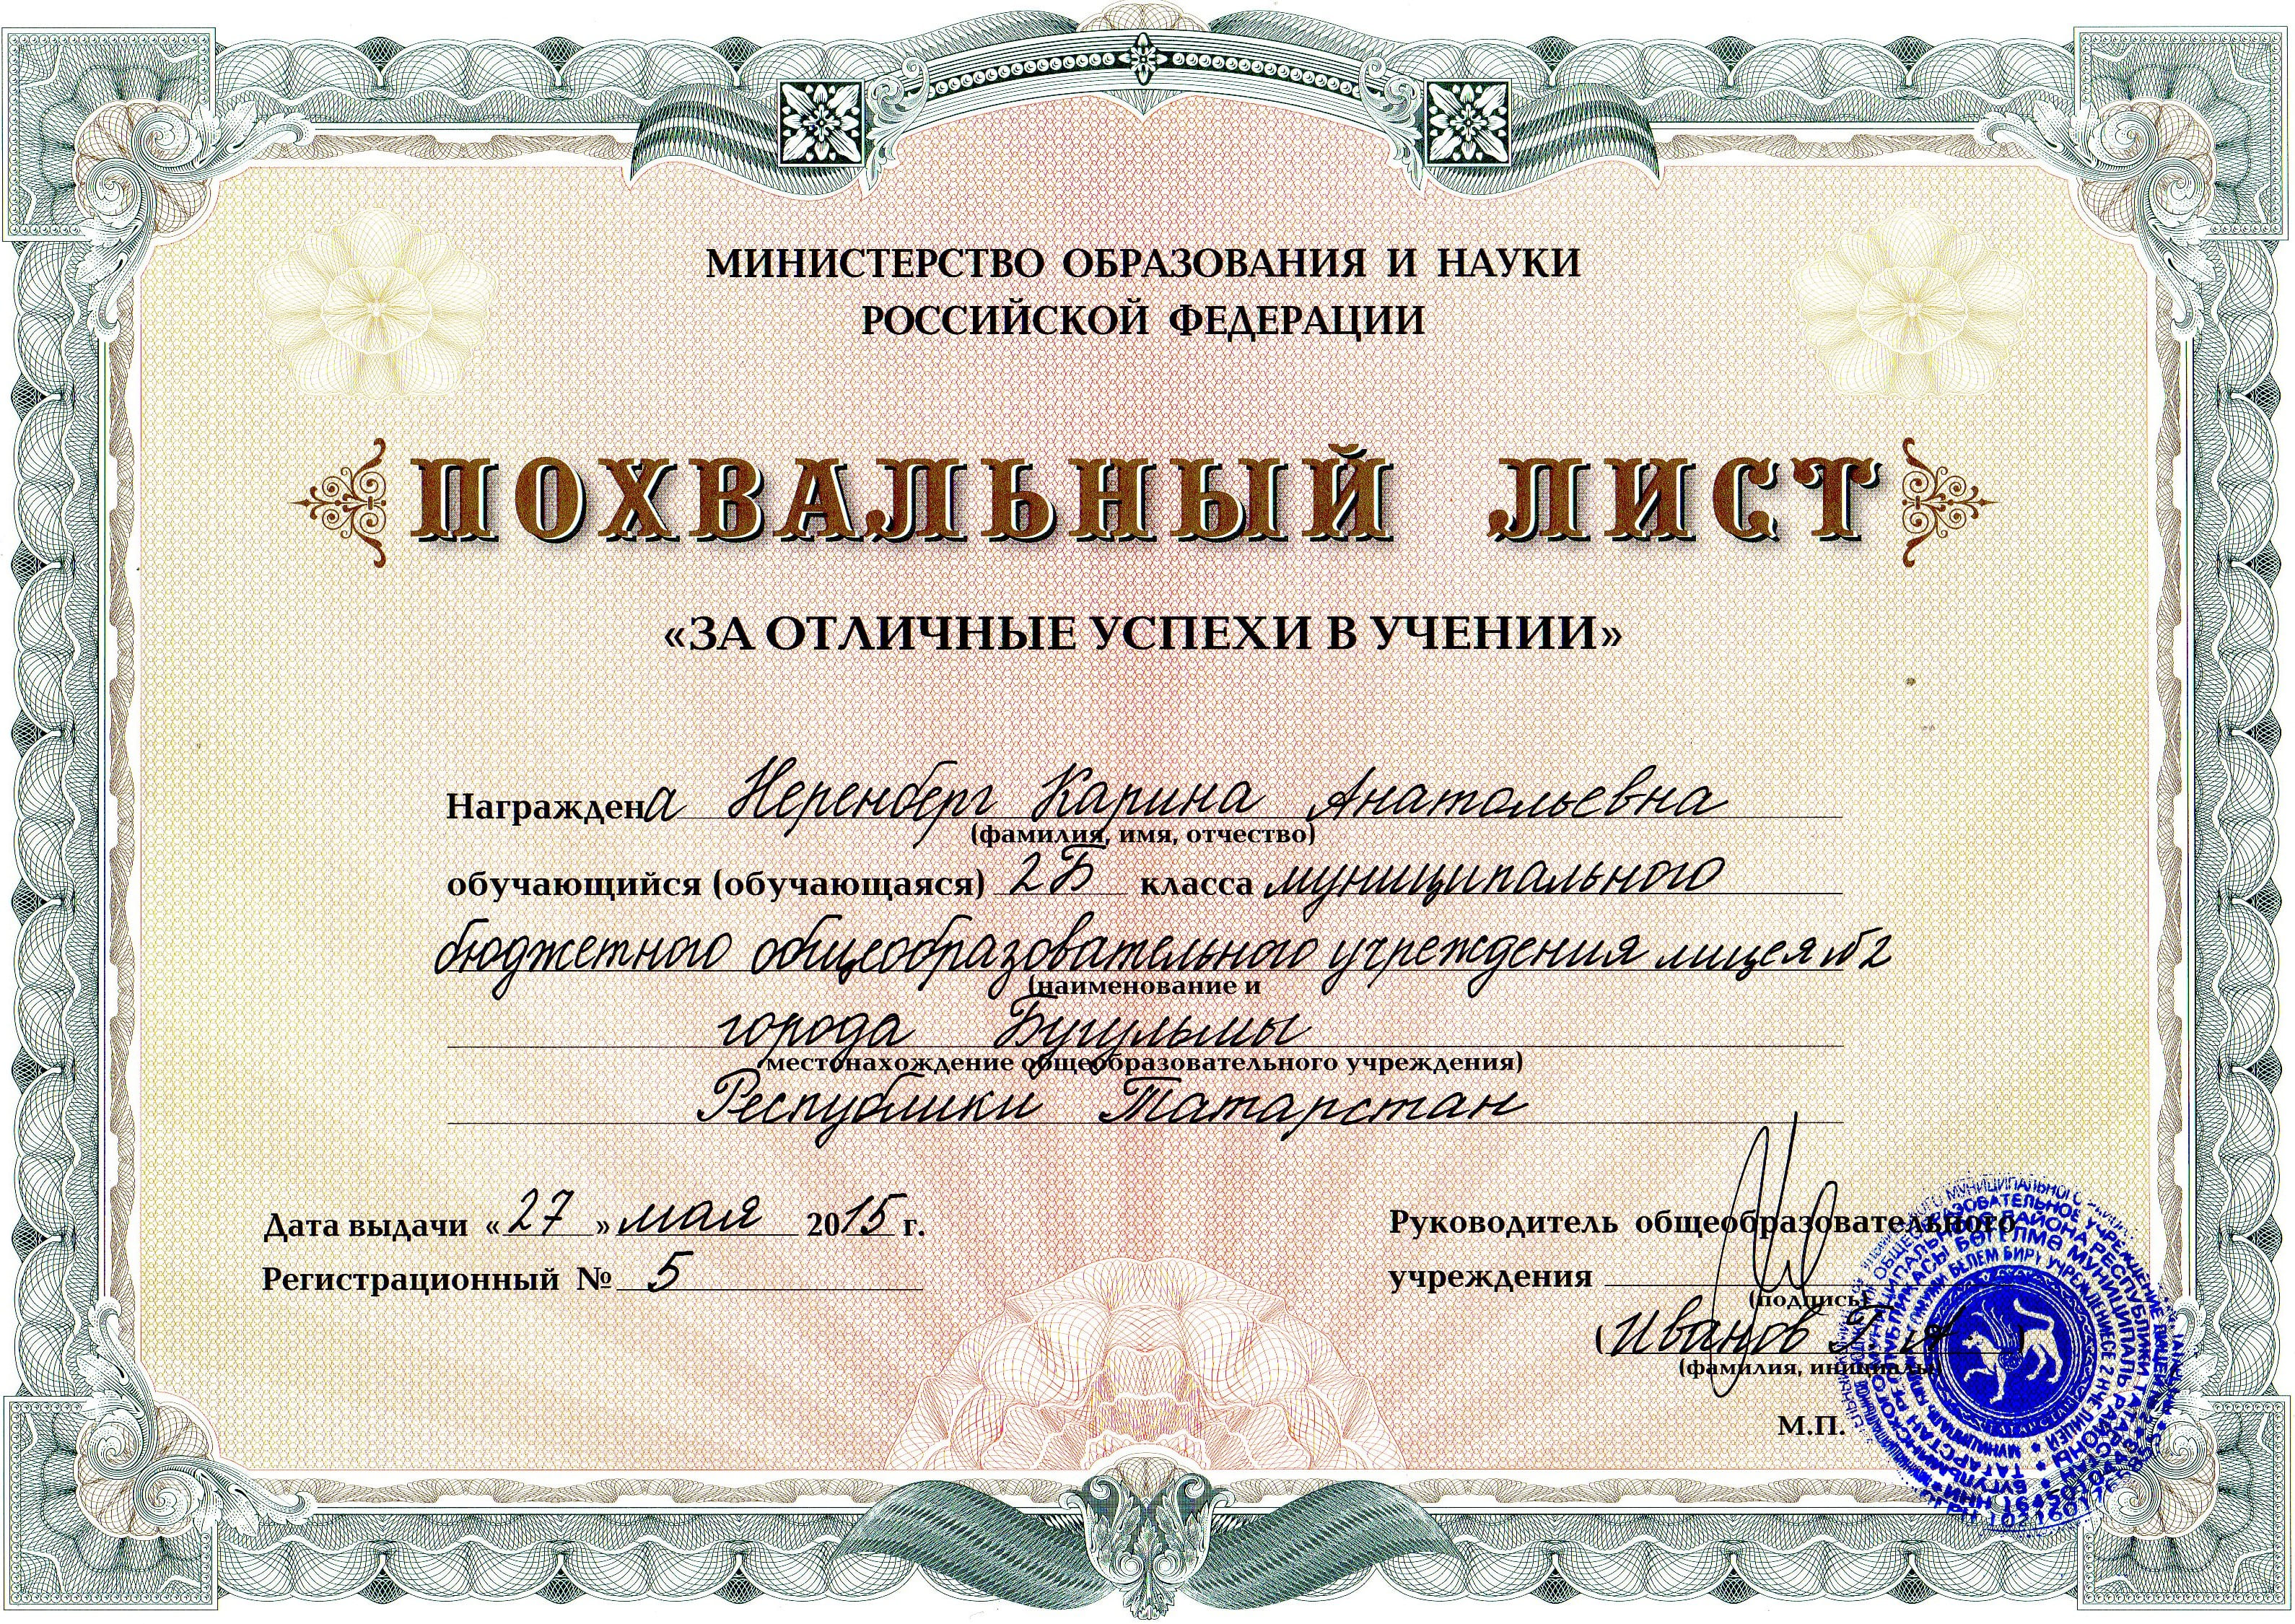 МИНИСТЕРСТВО ОБРАЗОВАНИЯ И НАУКИ
РОССИЙСКОЙ ФЕДЕРАЦИИ
ПОХВАЛЬНЫЙ ЛИСТ
«ЗА ОТЛИЧНЫЕ УСПЕХИ В УЧЕНИИ»
Награждена Неренберг Карина Анатольевна
(фамилия, имя, отчество)
обучающийся (обучающаяся) 2Б класса муниципального
бюджетного общеобразовательного учреждения лицея №2
(наименование и
города Бугульмы
местонахождение общеобразовательного учреждения)
Республики Татарстан
Дата выдачи «27» мая 2015 г.
Регистрационный № 5
Руководитель общеобразовательного
учреждения
(подпись)
(Иванов Г А)
(фамилия, инициалы)
М.П.